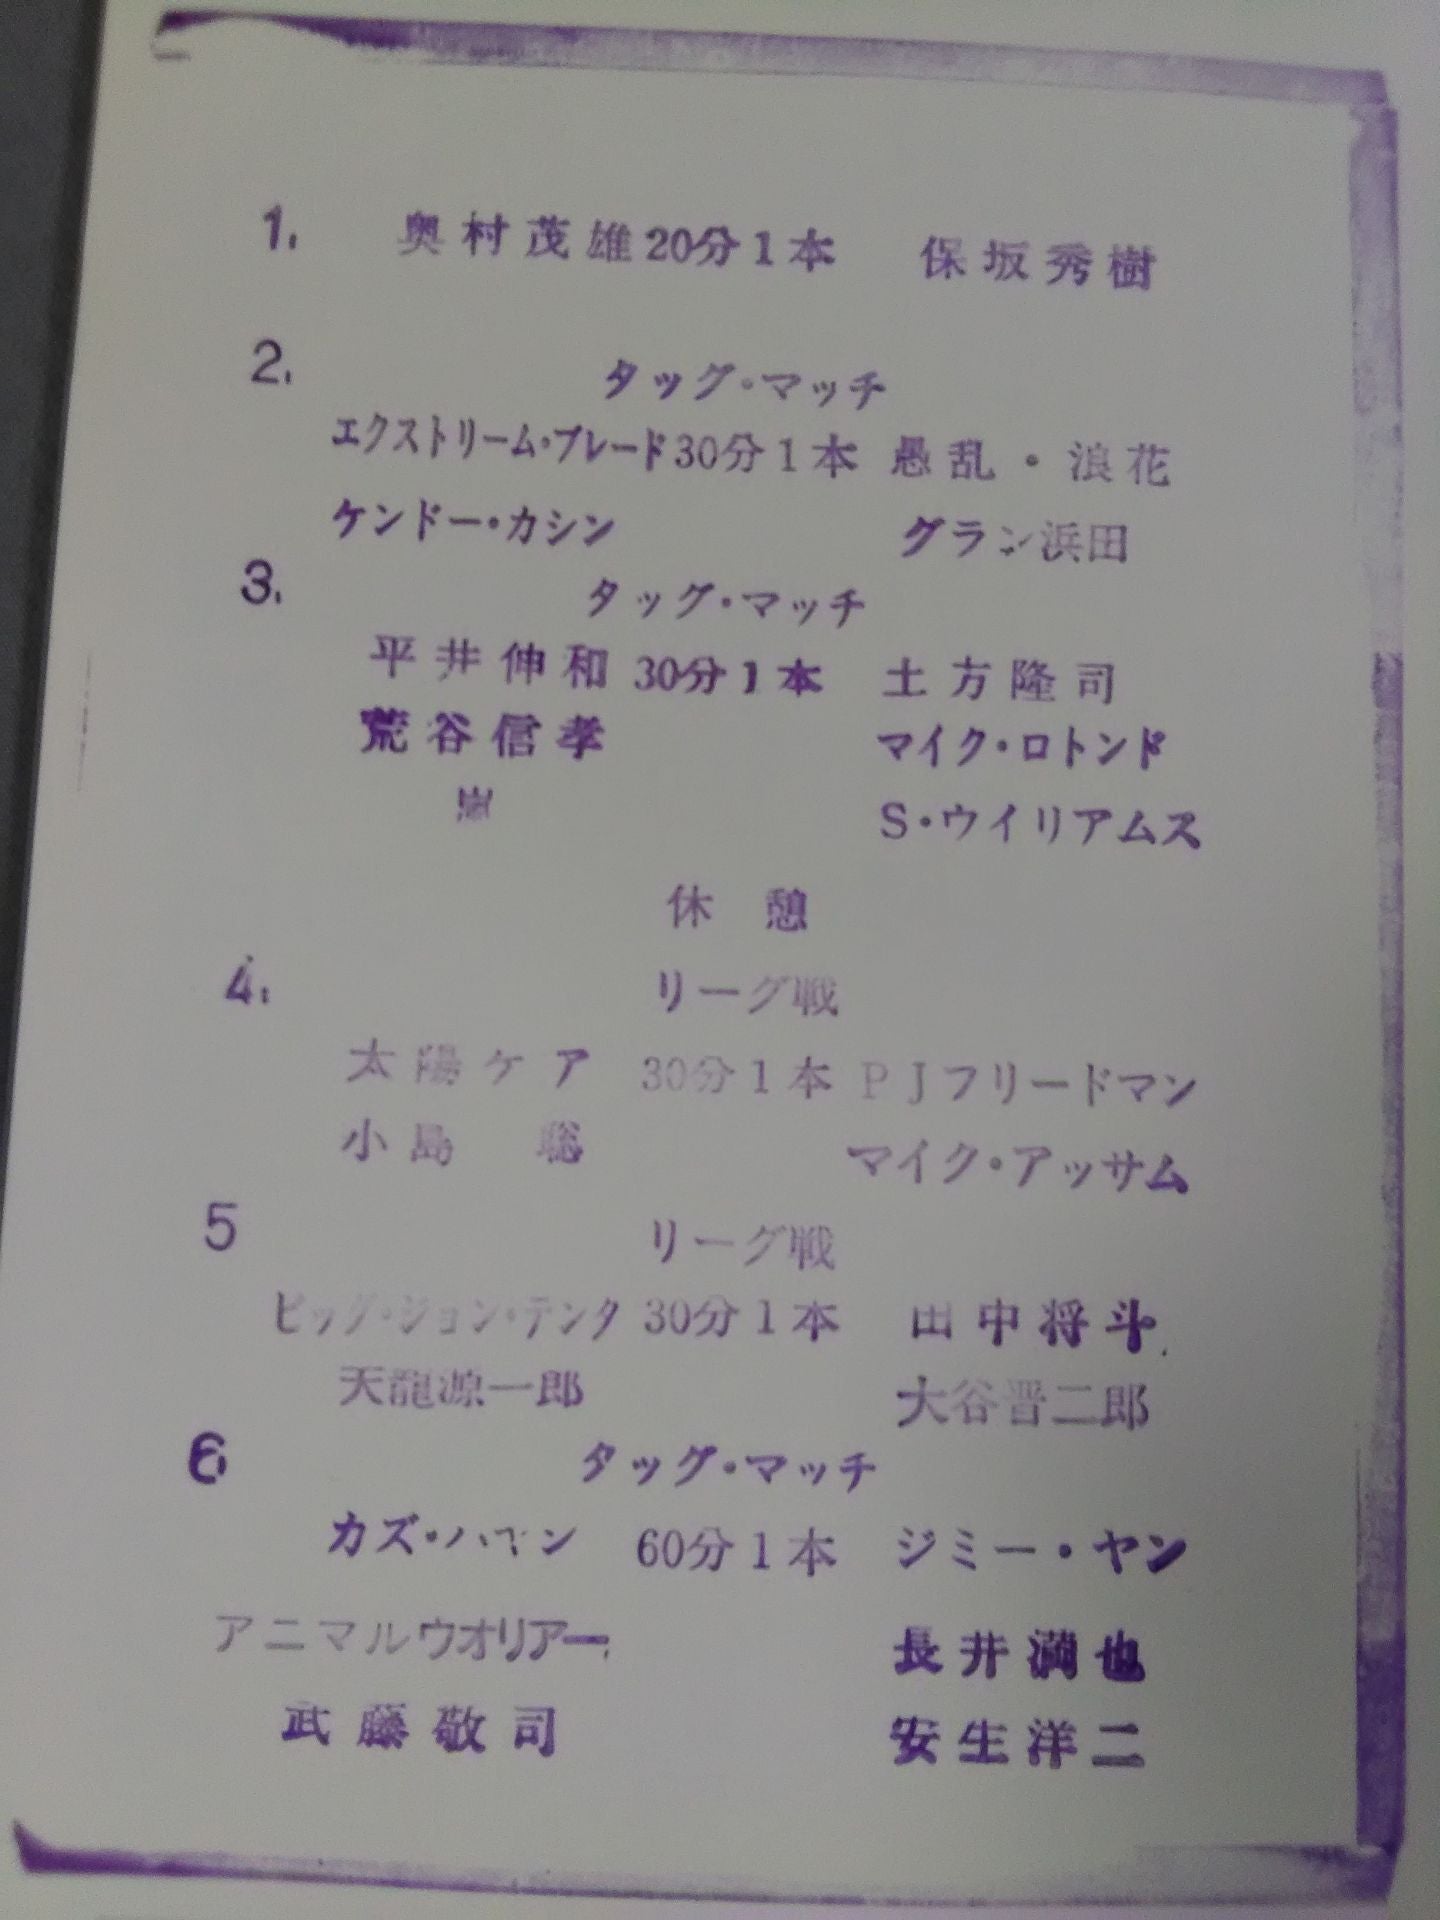 1. 奥村茂雄 20分1本 保坂秀樹
2. タッグ・マッチ
エクストリーム・ブレード 30分1本 愚乱・浪花
ケンドー・カシン グラン浜田
3. タッグ・マッチ
平井伸和 30分1本 土方隆司
荒谷信孝 マイク・ロトンド
嵐 S・ウイリアムス
休憩
4. リーグ戦
太陽ケア 30分1本 PJフリードマン
小島聡 マイク・アッサム
5 リーグ戦
ビッグ・ジョン・テンタ 30分1本 田中将斗
天龍源一郎 大谷晋二郎
6 タッグ・マッチ
カズ・ハヤシ 60分1本 ジミー・ヤン
アニマルウオリアー 長井満也
武藤敬司 安生洋二